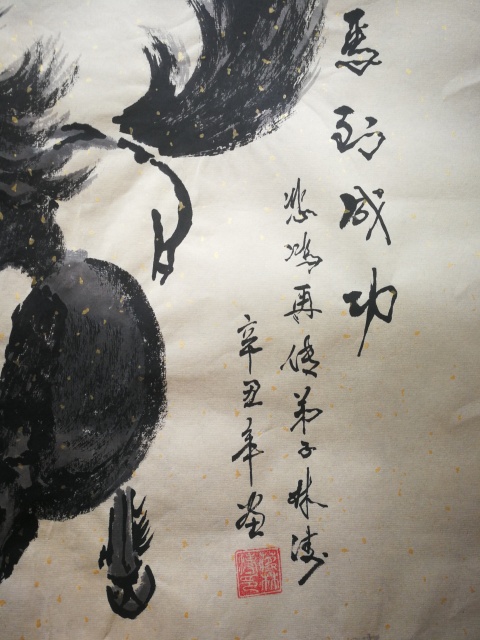 馬到成功
悲鴻再傳弟子林涛
辛丑年画